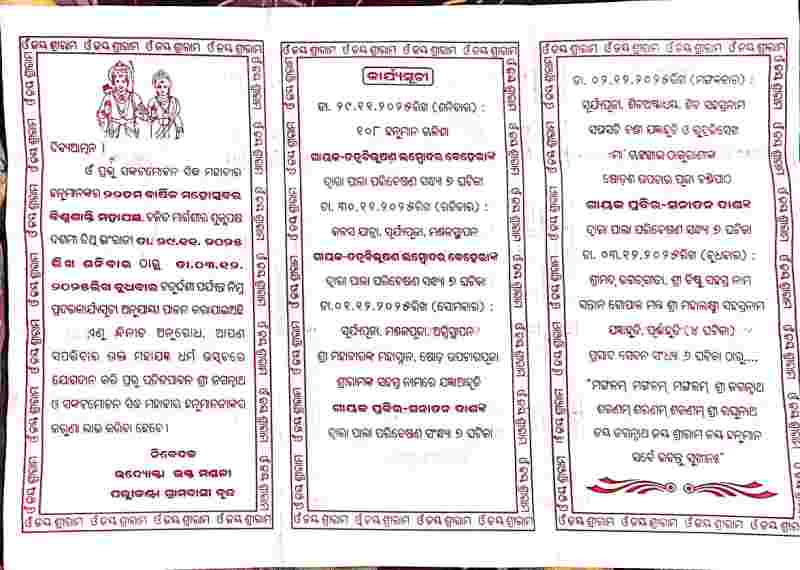 ଓଁ ଜୟ ଶ୍ରୀରାମ ଓଁ ଜୟ ଶ୍ରୀରାମ ଓଁ ଜୟ ଶ୍ରୀରାମ ଓଁ ଜୟ ଶ୍ରୀରାମ
ଦିବ୍ୟଆତ୍ମନ !
ଓଁ ପ୍ରଭୁ ସଙ୍କଟମୋଚନ ସିଦ୍ଧ ମହାବୀର
ହନୁମାନଙ୍କର ୨୨ତମ ବାର୍ଷିକ ମହୋତ୍ସବର
ବିଶ୍ୱଶାନ୍ତି ମହାଯଜ୍ଞ ଚଳିତ ମାର୍ଗଶୀର ଶୁକ୍ଳପକ୍ଷ
ଦଶମୀ ତିଥି ଇଂରାଜୀ ତା. ୨୯.୧୧. ୨୦୨୫
ରିଖ ଶନିବାର ଠାରୁ ତା.୦୩.୧୨.
୨୦୨୫ରିଖ ବୁଧବାର ଚତୁର୍ଦ୍ଦଶୀ ପର୍ଯ୍ୟନ୍ତ ନିମ୍ନ
ପ୍ରଦତ୍ତକାର୍ଯ୍ୟସୂଚୀ ଅନୁଯାୟୀ ପାଳନ କରାଯାଉଅଛି
ଏଣୁ ବିନୀତ ଅନୁରୋଧ, ଆପଣ
ସପରିବାର ଉକ୍ତ ମହାଯଜ୍ଞ ଧର୍ମ ଉତ୍ସବରେ
ଯୋଗଦାନ କରି ପ୍ରଭୁ ପତିତପାବନ ଶ୍ରୀ ଜଗନ୍ନାଥ
ଓ ସଙ୍କଟମୋଚନ ସିଦ୍ଧ ମହାବୀର ହନୁମାନଜୀଙ୍କର
କରୁଣା ଲାଭ କରିବା ହେବେ ।
ନିବେଦକ
ଉଦ୍ୟୋକ୍ତା ଭକ୍ତ ମଣ୍ଡଳୀ
ଗ୍ରାମବାସୀ ବୃନ୍ଦ
ଓଁ ଜୟ ଶ୍ରୀରାମ ଓଁ ଜୟ ଶ୍ରୀରାମ ଓଁ ଜୟ ଶ୍ରୀରାମ ଓଁ ଜୟ ଶ୍ରୀରାମ
ଓଁ ଜୟ ଶ୍ରୀରାମ ଓଁ ଜୟ ଶ୍ରୀରାମ ଓଁ ଜୟ ଶ୍ରୀରାମ ଓଁ ଜୟ ଶ୍ରୀରାମ
କାର୍ଯ୍ୟସୂଚୀ
ତା. ୨୯.୧୧.୨୦୨୫ରିଖ (ଶନିବାର) :
୧୦୮ ହନୁମାନ ଚାଳିଶା
ଗାୟକ-ତତ୍ୱବିଭୂଷଣ ଲମ୍ବୋଦର ବେହେରାଙ୍କ
ଦ୍ୱାରା ପାଲା ପରିବେଷଣ ସନ୍ଧ୍ୟା ୭ ଘଟିକା
ତା. ୩୦.୧୧.୨୦୨୫ରିଖ (ରବିବାର) :
କଳସ ଯାତ୍ରା, ସୂର୍ଯ୍ୟପୂଜା, ମଣ୍ଡଳସ୍ଥାପନ
ଗାୟକ-ତତ୍ୱବିଭୂଷଣ ଲମ୍ବୋଦର ବେହେରାଙ୍କ
ଦ୍ୱାରା ପାଲା ପରିବେଷଣ ସନ୍ଧ୍ୟା ୭ ଘଟିକା
ତା.୦୧.୧୨.୨୦୨୫ରିଖ (ସୋମବାର) :
ସୂର୍ଯ୍ୟପୂଜା, ମଣ୍ଡଳପୂଜା, ଅଗ୍ନିସ୍ଥାପନ
ଶ୍ରୀ ମହାବୀରଙ୍କ ମହାସ୍ନାନ, ଷୋଡ଼ ଉପଚାରପୂଜା
ଶ୍ରୀରାମଙ୍କ ସହସ୍ର ନାମରେ ଯଜ୍ଞାଆହୂତି
ଗାୟକ ପ୍ରବିର-ସନାତନ ଦାଶଙ୍କ
ଦ୍ୱାରା ପାଲା ପରିବେଷଣ ସଂଧ୍ୟା ୭ ଘଟିକା
ଓଁ ଜୟ ଶ୍ରୀରାମ ଓଁ ଜୟ ଶ୍ରୀରାମ ଓଁ ଜୟ ଶ୍ରୀରାମ ଓଁ ଜୟ ଶ୍ରୀରାମ
ଓଁ ଜୟ ଶ୍ରୀରାମ ଓଁ ଜୟ ଶ୍ରୀରାମ ଓଁ ଜୟ ଶ୍ରୀରାମ ଓଁ ଜୟ ଶ୍ରୀରାମ
ତା. ୦୨.୧୨.୨୦୨୫ରିଖ (ମଙ୍ଗଳବାର) :
ସୂର୍ଯ୍ୟପୂଜା, ଶିବଅଷ୍ଟାଧ୍ୟାୟ, ଶିବ ସହସ୍ରନାମ
ସପ୍ତସତୀ ଚଣ୍ଡୀ ଯଜ୍ଞାହୂତି ଓ ରୁଦ୍ରାଭିଷେକ
ମା' ଠାକୁରାଣୀଙ୍କ
ଷୋଡ଼ଶ ଉପଚାର ପୂଜା ଚଣ୍ଡୀପାଠ
ଗାୟକ ପ୍ରବିର-ସନାତନ ଦାଶଙ୍କ
ଦ୍ୱାରା ପାଲା ପରିବେଷଣ ସନ୍ଧ୍ୟା ୭ ଘଟିକା
ତା. ୦୩.୧୨.୨୦୨୫ରିଖ (ବୁଧବାର) :
ଶ୍ରୀମଦ୍ ଭଗବଦ୍‌ଗୀତା, ଶ୍ରୀ ବିଷ୍ଣୁ ସହସ୍ର ନାମ
ସନ୍ତାନ ଗୋପାଳ ମନ୍ତ୍ର ଶ୍ରୀ ମହାଲକ୍ଷ୍ମୀ ସହସ୍ରନାମ
ଯଜ୍ଞାହୂତି, ପୂର୍ଣ୍ଣାହୂତି (୪ ଘଟିକା)
ପ୍ରସାଦ ସେବନ ସଂଧ୍ୟା ୬ ଘଟିକା ଠାରୁ....,
"ମଙ୍ଗଳମ୍ ମଙ୍ଗଳମ୍ ମଙ୍ଗଳମ୍ ଶ୍ରୀ ଜଗନ୍ନାଥ
ଶରଣମ୍ ଶରଣମ୍ ଶରଣମ୍ ଶ୍ରୀ ରଘୁନାଥ
ଜୟ ଜଗନ୍ନାଥ ଜୟ ଶ୍ରୀରାମ ଜୟ ହନୁମାନ
ସର୍ବେ ଭବନ୍ତୁ ସୁଖୀନଃ"
ଓଁ ଜୟ ଶ୍ରୀରାମ ଓଁ ଜୟ ଶ୍ରୀରାମ ଓଁ ଜୟ ଶ୍ରୀରାମ ଓଁ ଜୟ ଶ୍ରୀରାମ